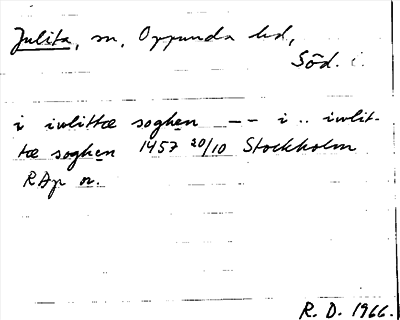 Julita, sn, Oppunda hd,
Söd.
i iulittæ soghen -- i .. iwlit-
tæ soghen 1457 20/10 Stockholm
RAp or.
R. D. 1966.